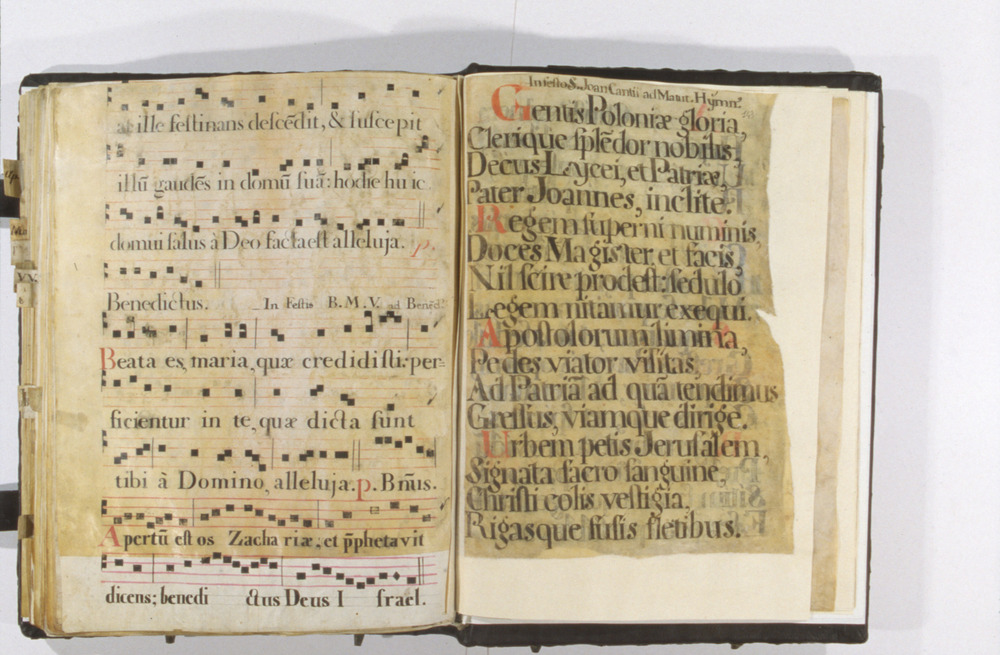 at ille festinans descēdit, & suscepit
illū gaudēs in domū suā: hodie huic
domui salus à Deo facta est alleluja. p.
Benedictus. In Festis B. M. V. ad Bened.
Beata es, maria, quæ credidisti: per=
ficientur in te, quæ dicta sunt
tibi à Domino, alleluja. p. Bñus.
Apertū est os Zacha riæ, et p̄phetavit
dicens; benedi ctus Deus I srael.
In festo S. Joan Cantii ad Matut. Hymn.
Gentis Poloniæ gloria,
Clerique splēdor nobilis,
Decus Lycei, et Patriæ,
Pater Joannes, inclite.
Regem superni numinis,
Doces Magister, et facis,
Nil scire prodest: sedulo
Legem nitamur exequi.
Apostolorum limina,
Pedes viator visitas,
Ad Patriā ad quā tendimus
Gressus, viamque dirige.
Urbem petis Jerusalem,
Signata sacro sanguine,
Christi colis vestigia,
Rigasque fusis fletibus.